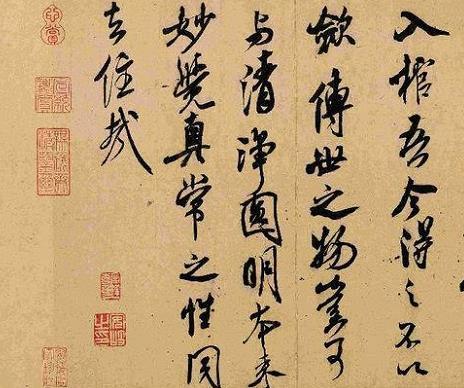 入棺吾今得之不以
歛傳世之物豈可
与清淨圓明本来
妙覺真常之性同
去住哉